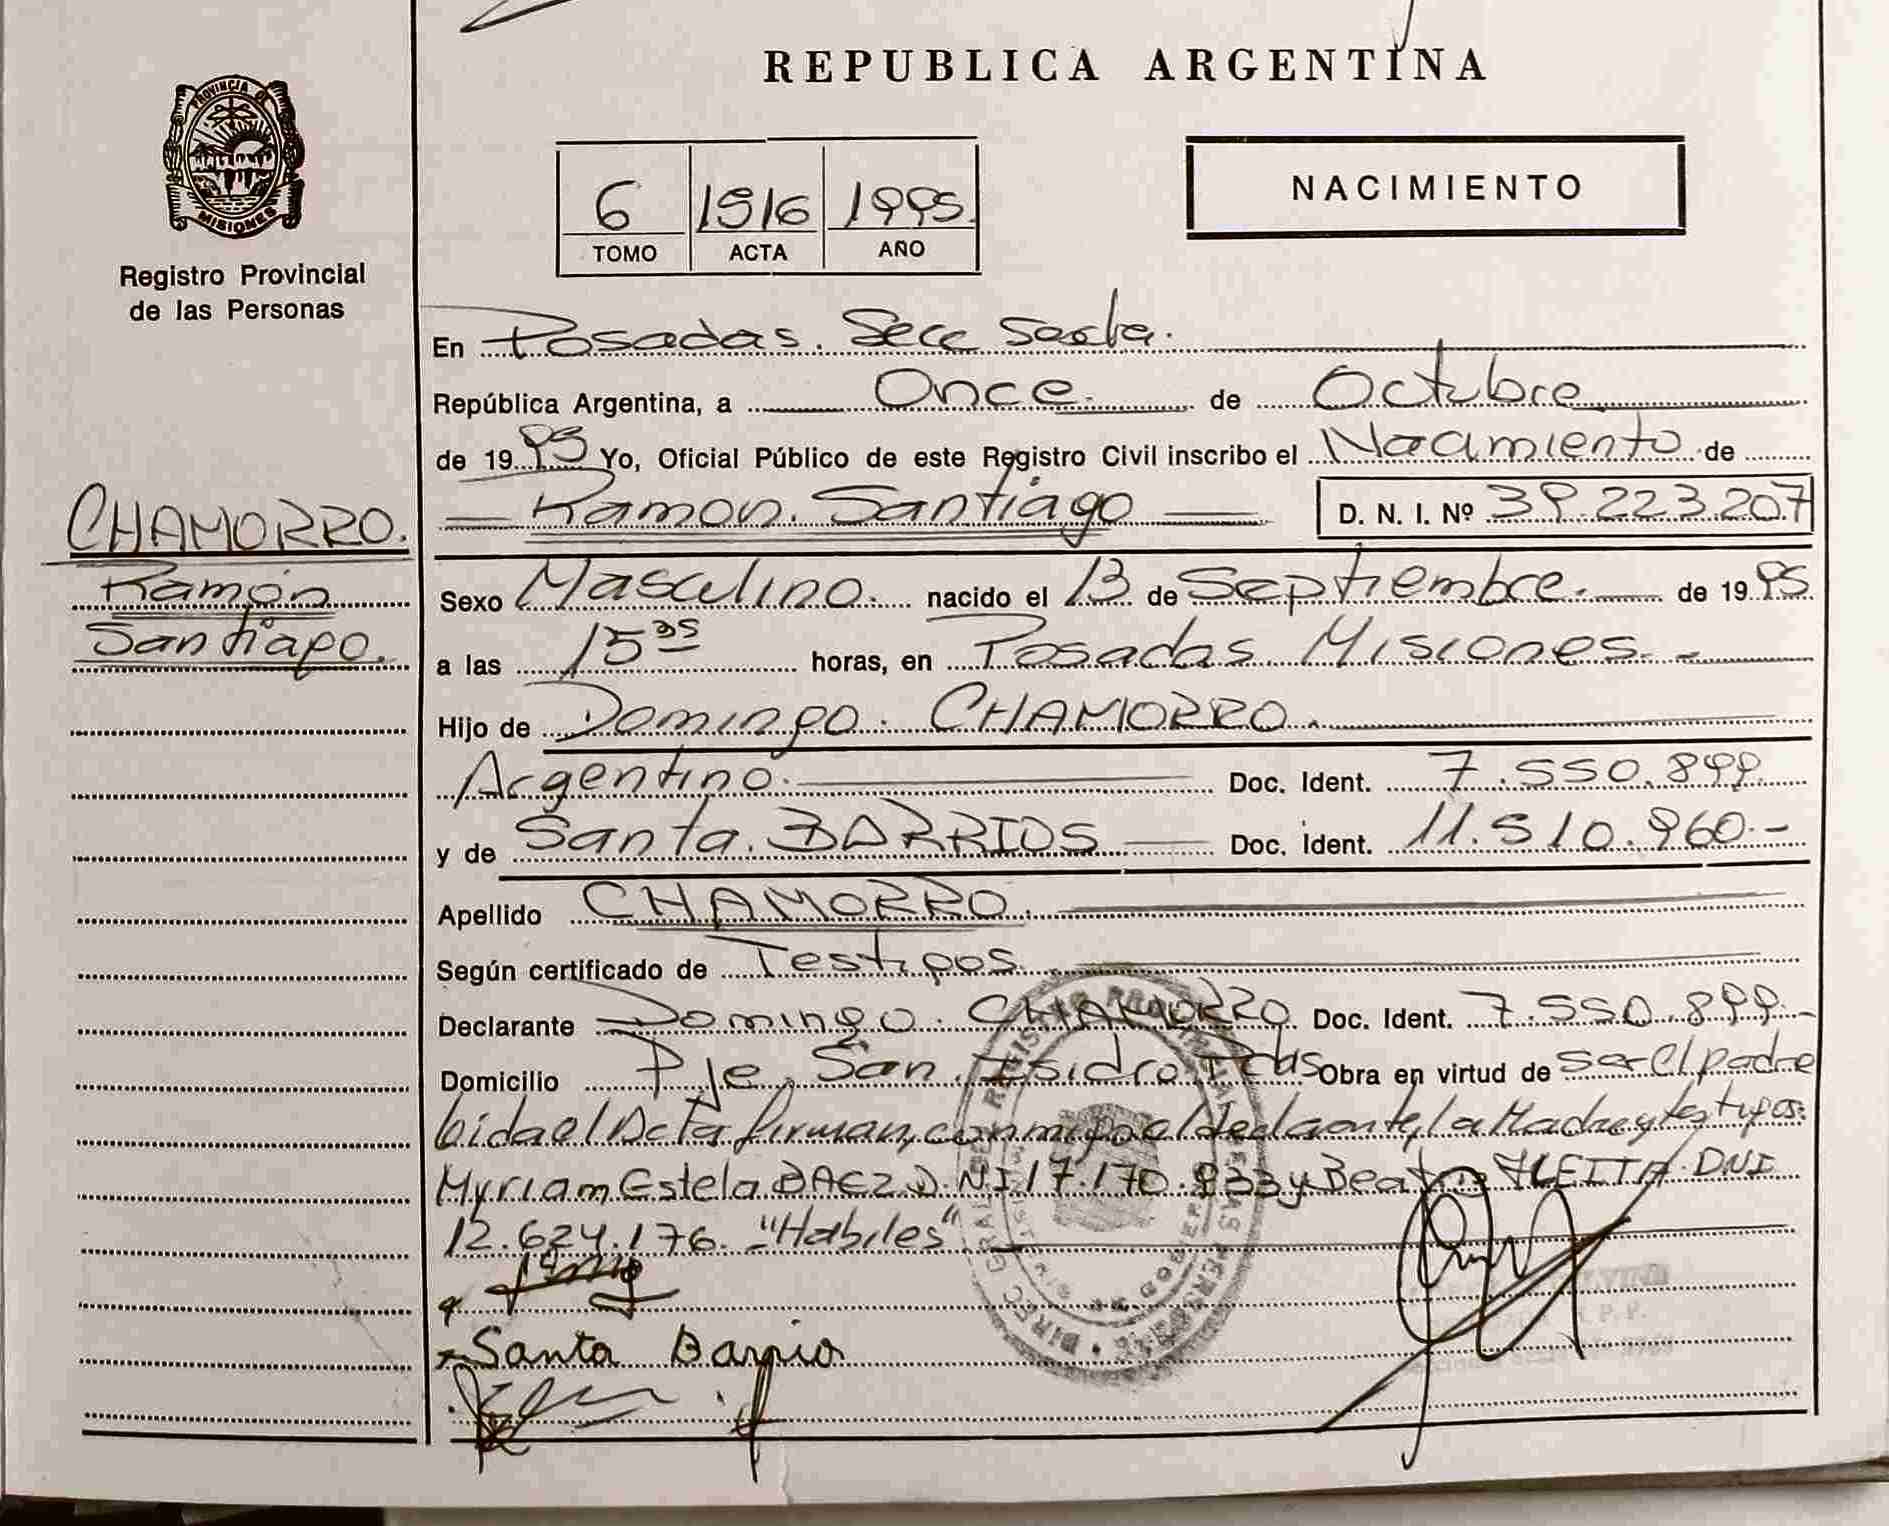 REPUBLICA ARGENTINA
PROVINCIA DE
MISIONES
Registro Provincial
de las Personas
6 1516 1995
TOMO ACTA AÑO
NACIMIENTO
En Posadas. Secc Sexta.
República Argentina, a Once. de Octubre
de 1995 Yo, Oficial Público de este Registro Civil inscribo el Nacimiento de
CHAMORRO.
Ramón
Santiago.
Ramon. Santiago D. N. I. Nº 39.223.207
Sexo Masculino. nacido el 13 de Septiembre. de 1995
a las 15 35 horas, en Posadas. Misiones.-
Hijo de Domingo. CHAMORRO.
Argentino. Doc. Ident. 7.550.899
y de Santa. BARRIOS Doc. Ident. 11.510.960.-
Apellido CHAMORRO.
Según certificado de Testigos
Declarante Domingo. CHAMORRO Doc. Ident. 7.550.899.-
Domicilio Pje. San. Isidro. Pdas Obra en virtud de ser el padre
lida el Acta firman, conmigo el declarante, la Madre y testigos:
Myriam Estela BAEZ D.N.I 17.170.933 y Beatriz FLEITA. DNI
12.624.176. "Habiles"
Santa Barrio